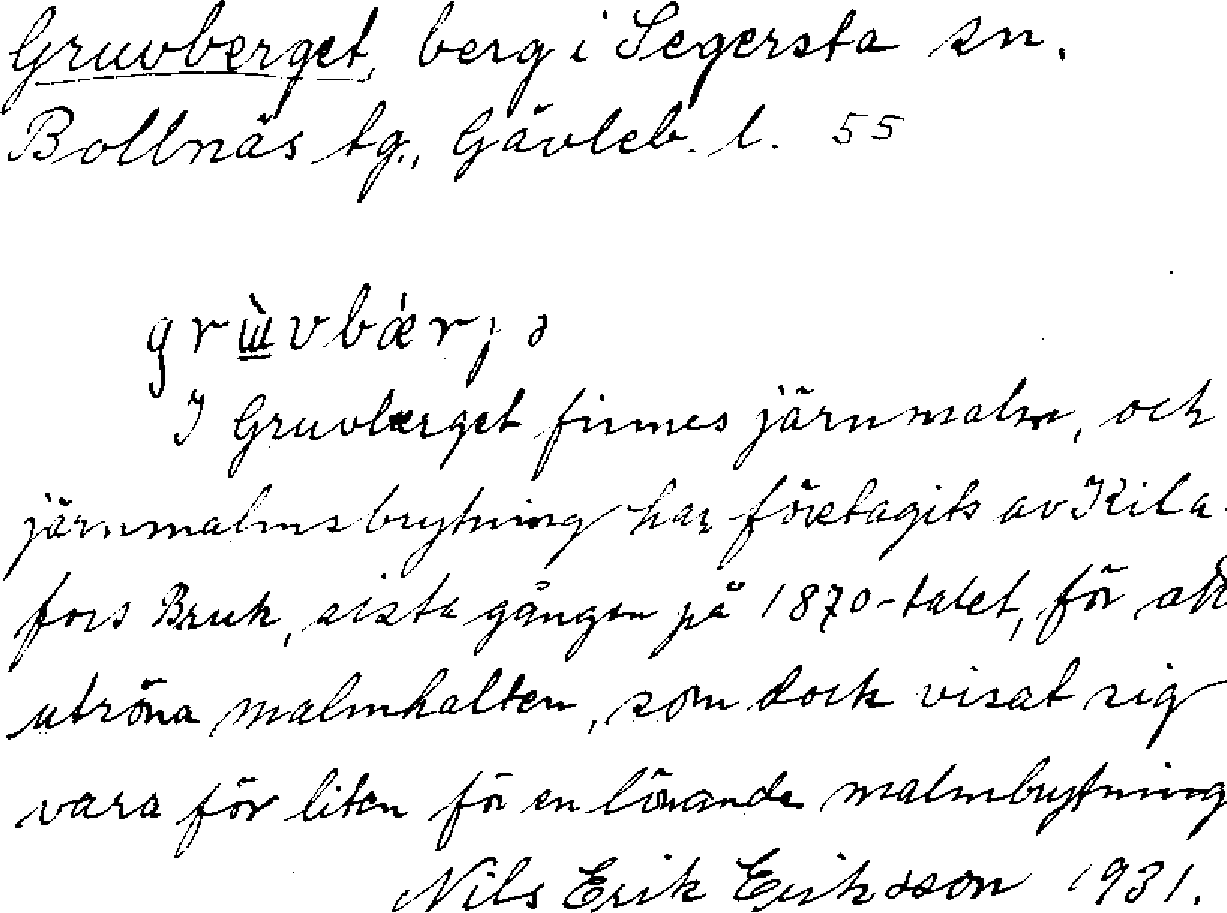 Gruvberget, berg i Segersta sn.
Bollnäs tg., Gävleb. l. 55
grɯ̀vbǽrjə
I Gruvberget finnes järnmalm, och
järnmalmsbrytning har företagits av Kila-
fors Bruk, sista gången på 1870-talet, för att
utröna malmhalten, som dock visat sig
vara för liten för en lönande malmbrytning
Nils Erik Eriksson 1931.